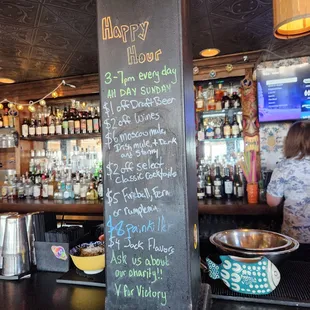 Happy
Hour
3-7pm every day
All DAY SUNDAY
$1 off Draft Beer
$2 off Wines
$6 moscow mule,
Irish Mule + Dark
and Stormy
$2 off select
classic cocktails
$5 Fireball, Fern
or rumplemin
$8 paint
$4 Jack Flavors
Ask us about
our charity!!
V for Victory